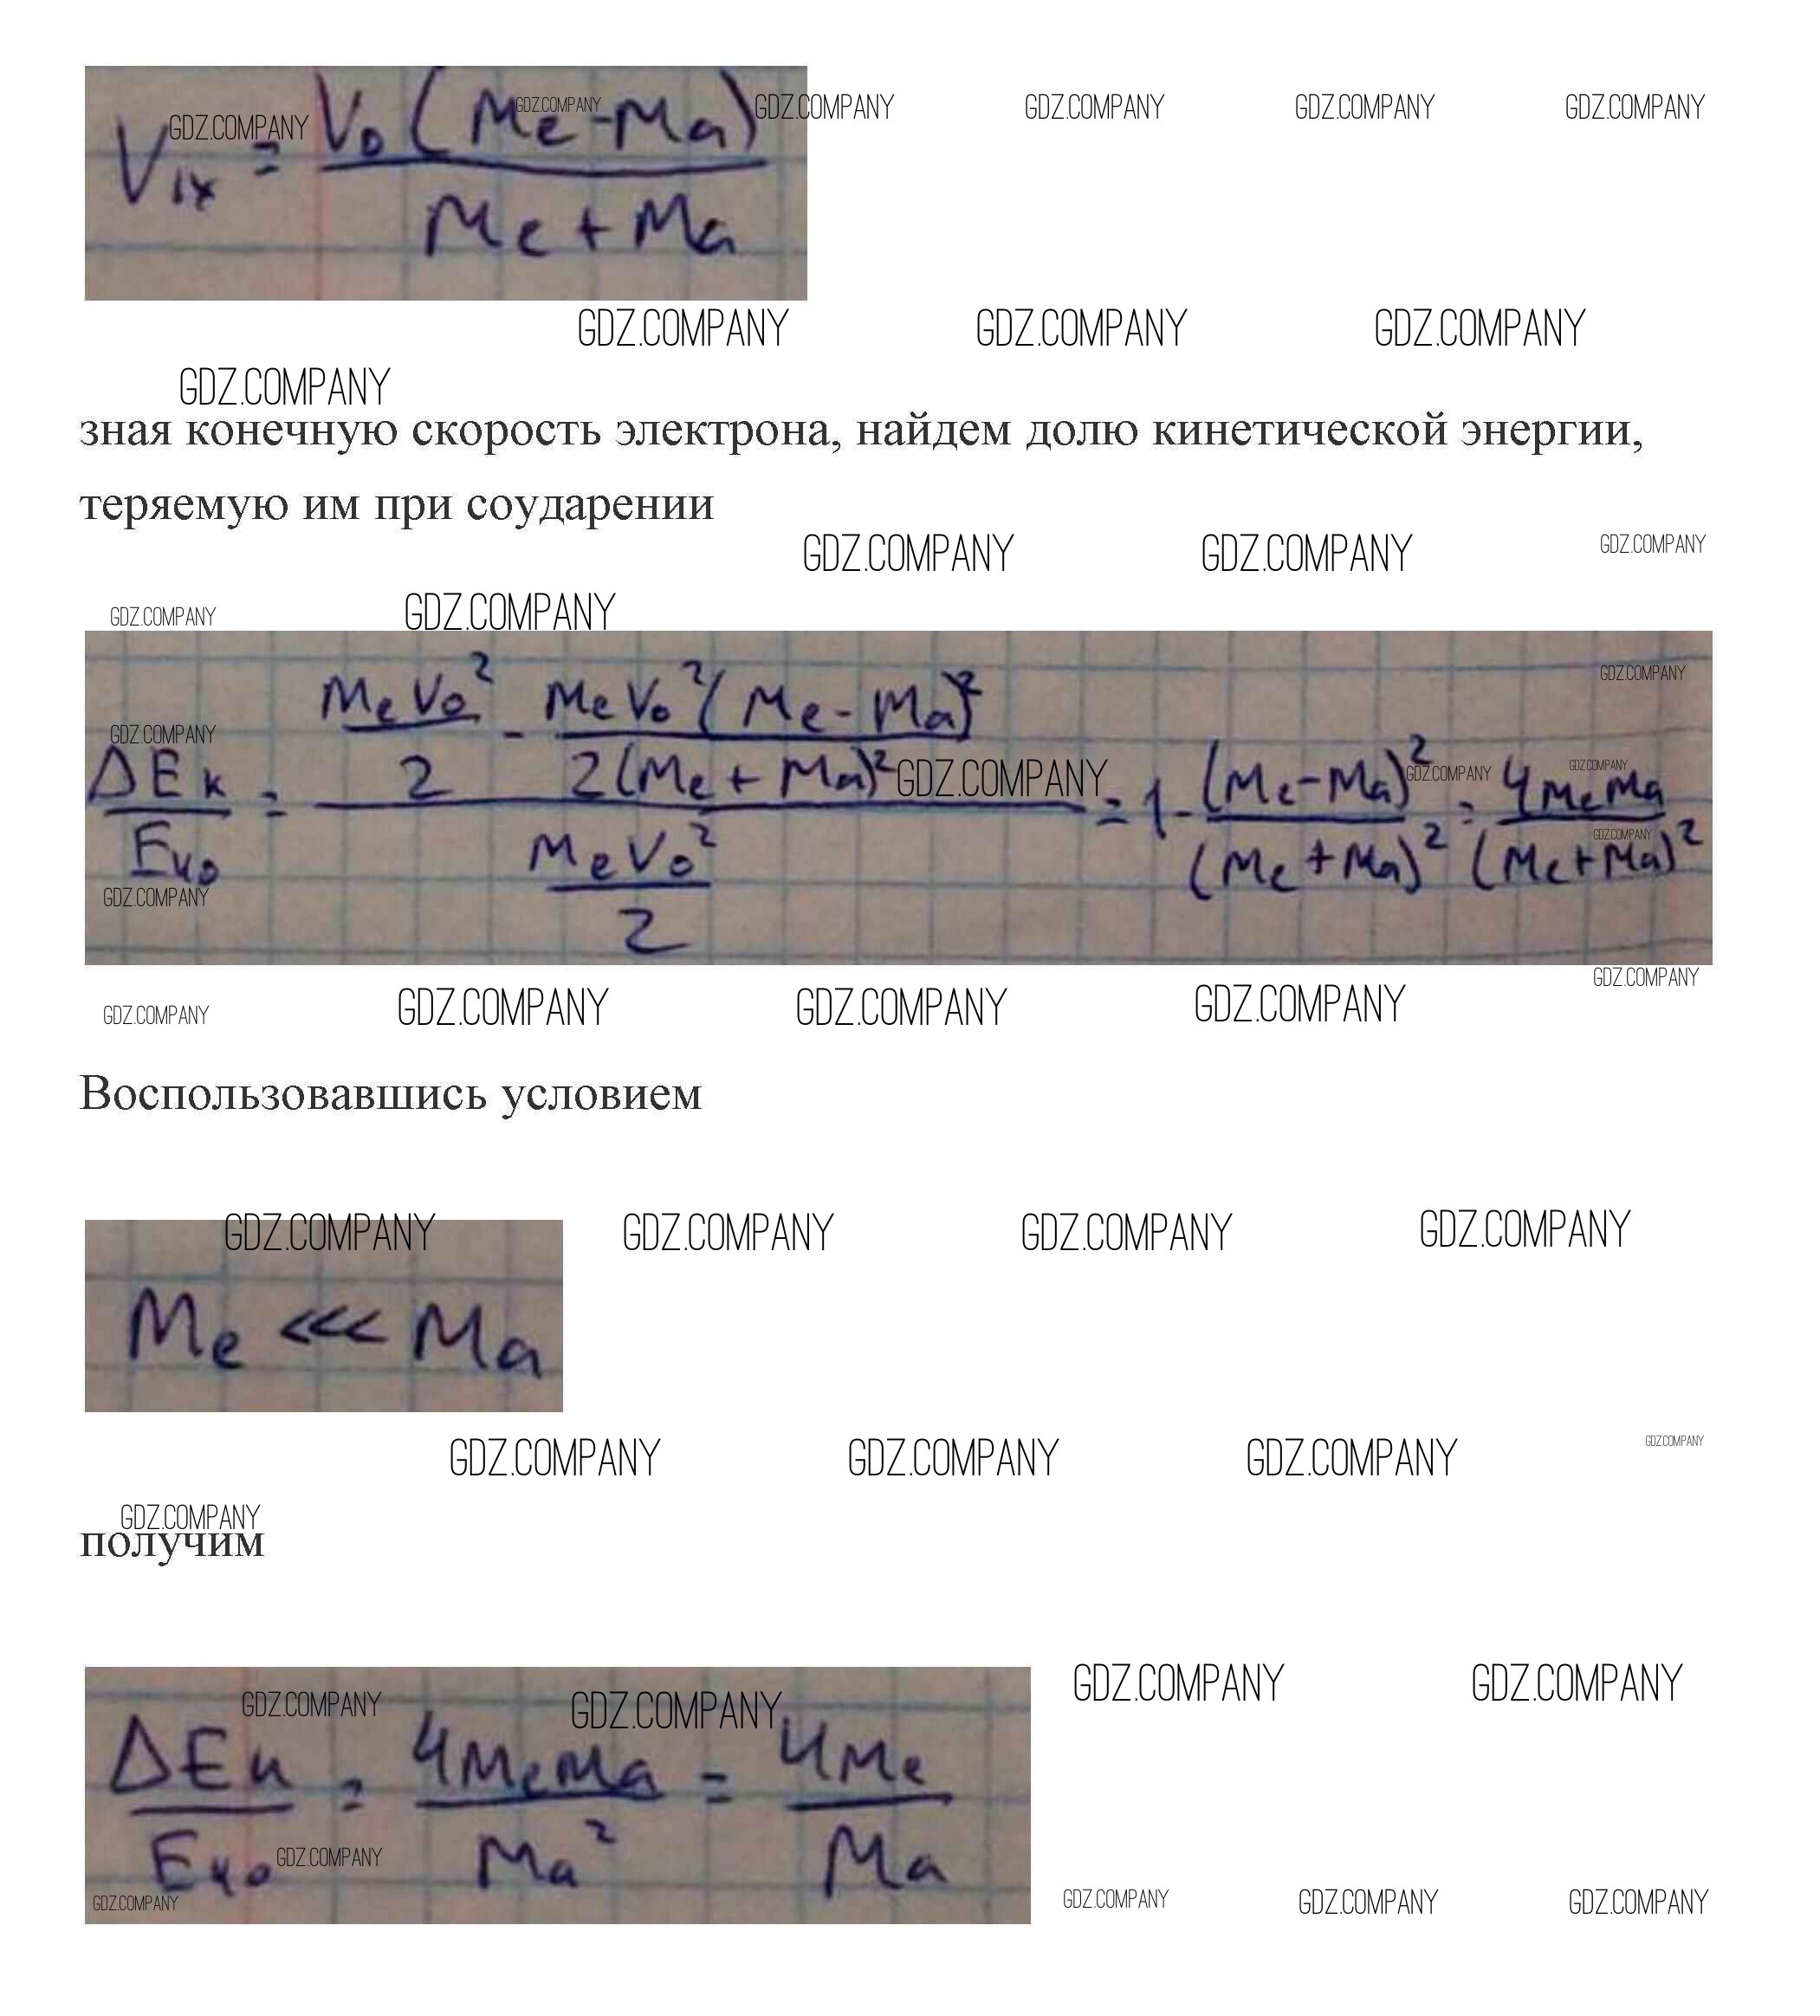 GDZ.COMPANY GDZ.COMPANY GDZ.COMPANY GDZ.COMPANY GDZ.COMPANY GDZ.COMPANY
V₁ₓ = V₀(Me-Ma) / Me+Ma
GDZ.COMPANY GDZ.COMPANY GDZ.COMPANY
GDZ.COMPANY
зная конечную скорость электрона, найдем долю кинетической энергии,
теряемую им при соударении
GDZ.COMPANY GDZ.COMPANY GDZ.COMPANY
GDZ.COMPANY GDZ.COMPANY
GDZ.COMPANY
GDZ.COMPANY GDZ.COMPANY GDZ.COMPANY GDZ.COMPANY GDZ.COMPANY
ΔEк / Eк₀ = (MeV₀² / 2 - MeV₀²(Me-Ma)² / 2(Me+Ma)²) / (MeV₀² / 2) = 1 - (Me-Ma)² / (Me+Ma)² = 4MeMa / (Me+Ma)²
GDZ.COMPANY
GDZ.COMPANY GDZ.COMPANY GDZ.COMPANY GDZ.COMPANY GDZ.COMPANY
Воспользовавшись условием
GDZ.COMPANY GDZ.COMPANY GDZ.COMPANY GDZ.COMPANY
Me <<< Ma
GDZ.COMPANY GDZ.COMPANY GDZ.COMPANY GDZ.COMPANY
GDZ.COMPANY
получим
GDZ.COMPANY GDZ.COMPANY GDZ.COMPANY GDZ.COMPANY
ΔEк / Eк₀ = 4MeMa / Ma² = 4Me / Ma
GDZ.COMPANY
GDZ.COMPANY GDZ.COMPANY GDZ.COMPANY GDZ.COMPANY